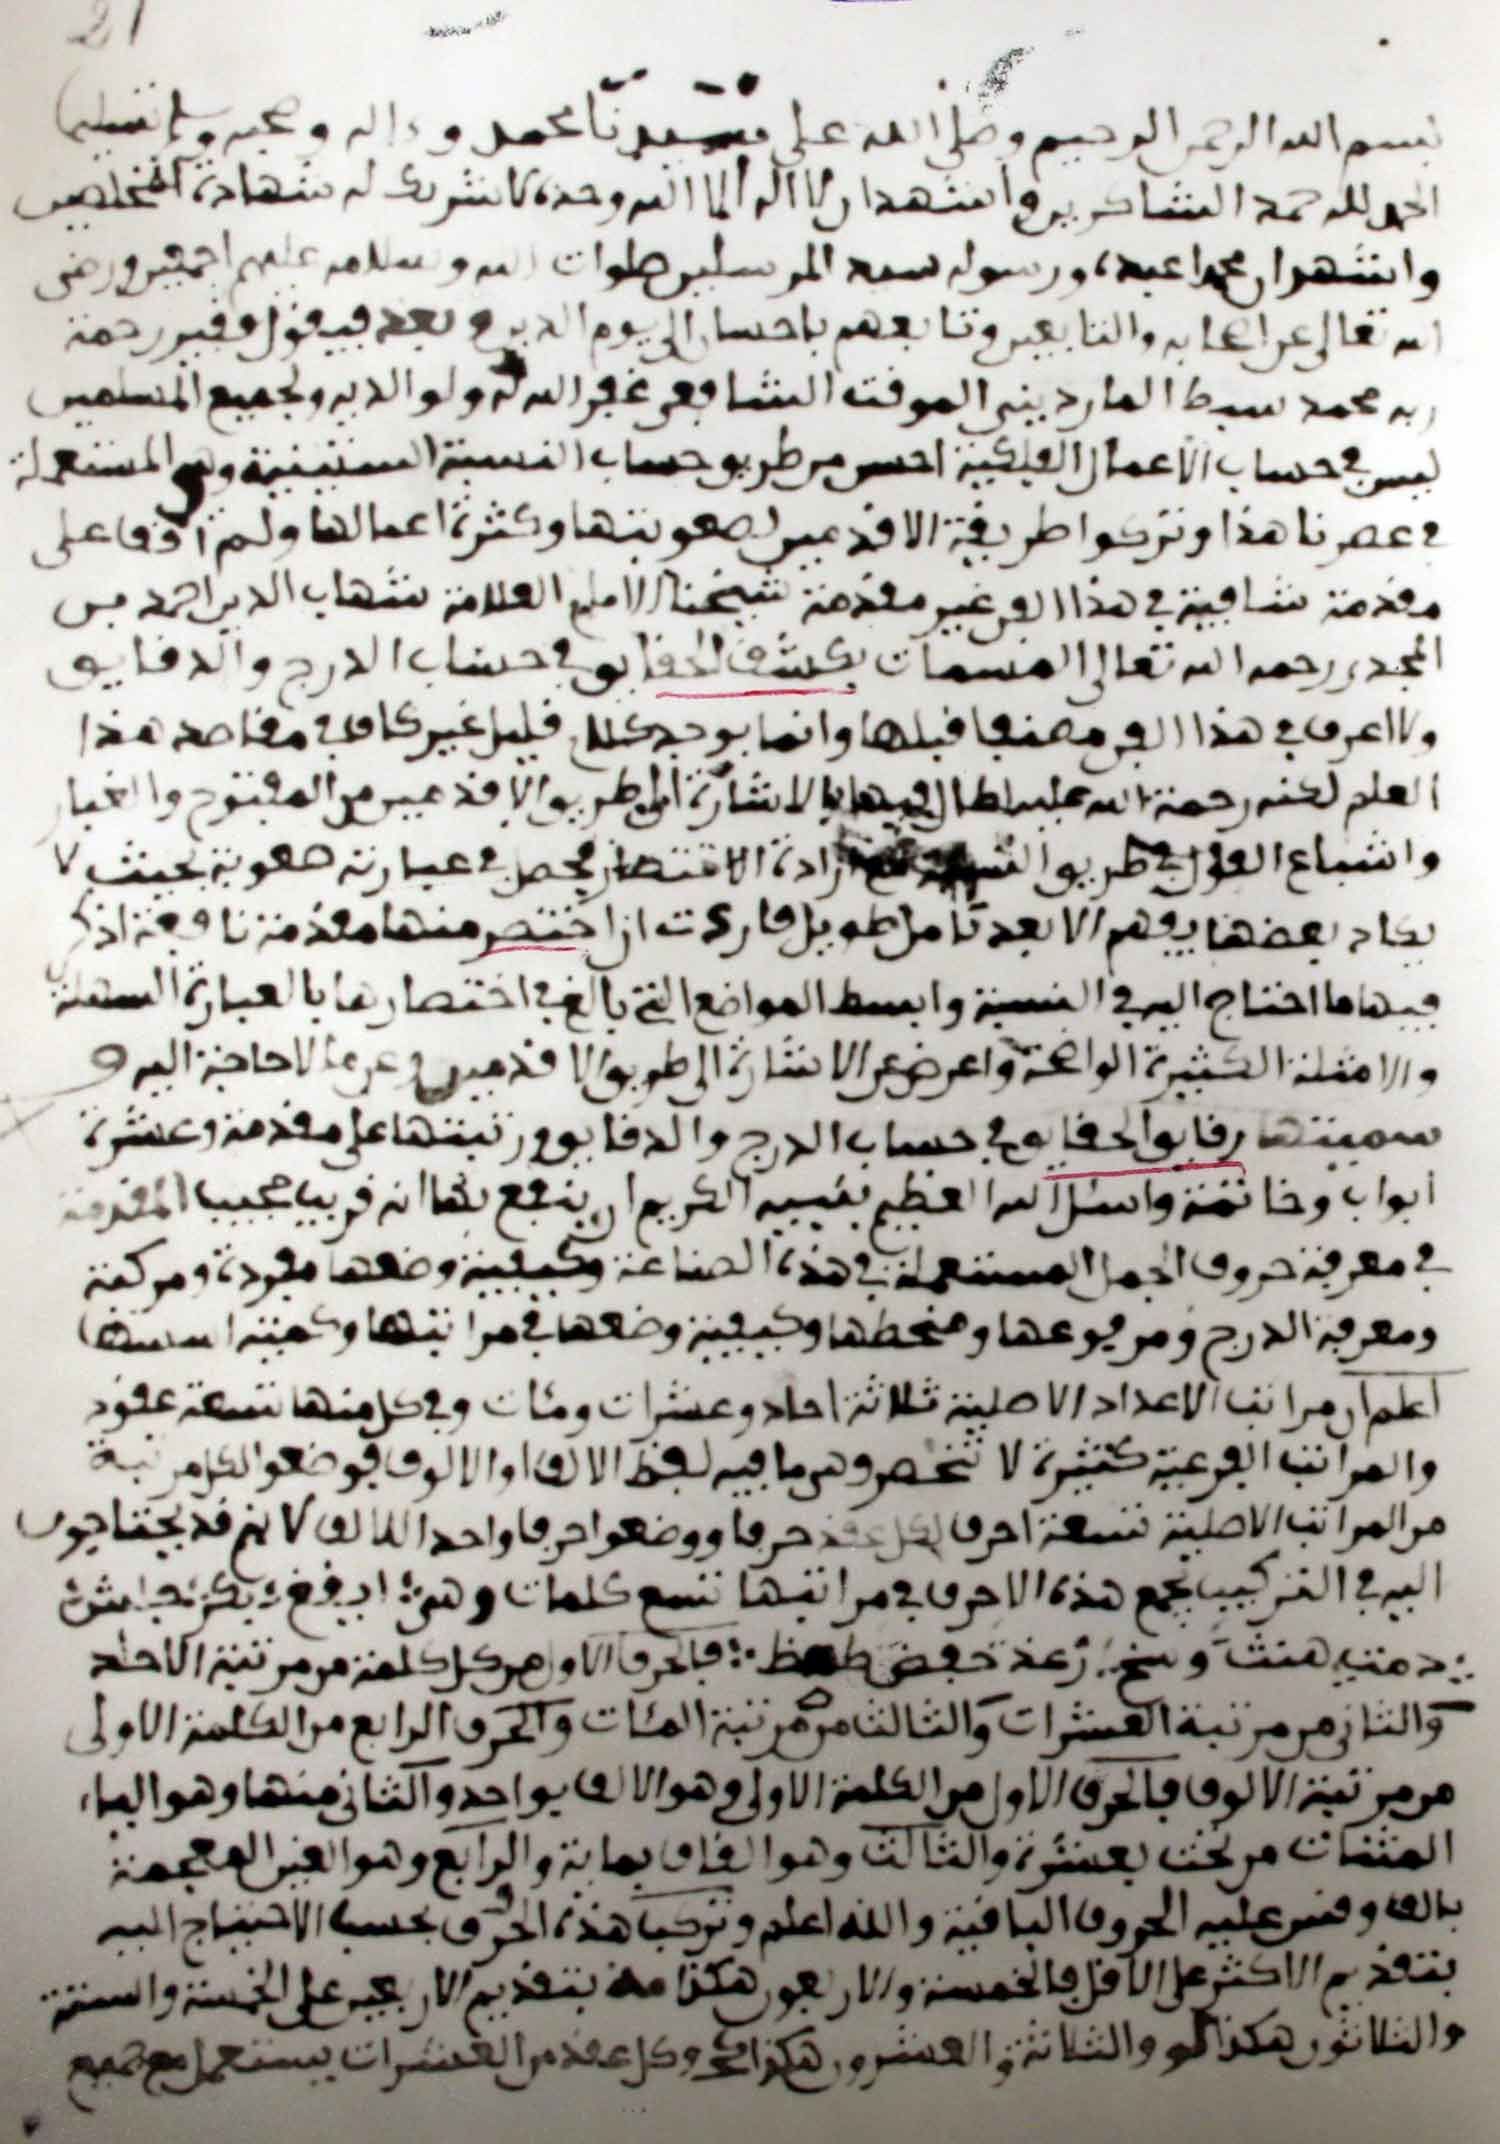 21
بسم الله الرحمن الرحيم وصلى الله على سيدنا محمد وءاله وصحبه وسلم تسليما
الحمد لله حمد الشاكرين واشهد ان لا اله الا الله وحده لا شريك له شهادة المخلصين
واشهد ان محمدا عبده ورسوله سيد المرسلين صلوات الله وسلامه عليهم اجمعين ورضي
الله تعالى عن اصحابه والتابعين وتابعهم باحسان الى يوم الدين وبعد فيقول فقير رحمة
ربه محمد سبط المارديني الموقت الشافعي غفر الله له ولوالديه ولجميع المسلمين
ليس في حساب الاعمال الفلكية احسن من طريق حساب النسبة الستينية وهي المستعملة
في عصرنا هذا وتركوا طريقة الاقدمين لصعوبتها وكثرة اعمالها ولم اقف على
مقدمة شافية في هذا الفن غير مقدمة شيخنا الامام العلامة شهاب الدين احمد بن
المجدي رحمه الله تعالى المسمات بكشف الحقايق في حساب الدرج والدقايق
ولا اعرف في هذا الفن مصنفا قبلها وانما يوجد كلام قليل غير كاف في مقاصد هذا
العلم لكنه رحمة الله عليه اطال فيها بالاشارة الى طريق الاقدمين من المفتوح والغبار
واشباع القول في طريق النسبة مع ارادة الاقتصار فحصل في عبارته صعوبة بحيث لا
يكاد بعضها يفهم الا بعد تامل طويل فاردت ان اختصر منها مقدمة نافعة اذكر
فيها ما احتاج اليه في النسبة وابسط المواضع التي بالغ في اختصارها بالعبارة السهلة
والامثلة الكثيرة الواضحة واعرض عن الاشارة الى طريق الاقدمين وعن ما لا حاجة اليه و
سميتها رقايق الحقايق في حساب الدرج والدقايق ورتبتها على مقدمة وعشرة
ابواب وخاتمة واسئل الله العظيم بنبيه الكريم ان ينفع بها انه قريب مجيب المقدمة
في معرفة حروف الجمل المستعملة في هذه الصناعة وكيفية وضعها مفردة ومركبة
ومعرفة الدرج ومرفوعها ومنحطها وكيفية وضعها في مراتبها وكمية اسسها
اعلم ان مراتب الاعداد الاصلية ثلاثة احاد وعشرات ومئات وفي كل منها تسعة عقود
والمراتب الفرعية كثيرة لا تنحصر وهي ما فيه لفظ الالف او الالوف فوضعوا لكل مرتبة
من المراتب الاصلية تسعة احرف لكل عقد حرفا ووضعوا حرفا واحدا للالف لانهم قد يحتاجون
اليه في التركيب يجمع هذه الاحرف في مراتبها تسع كلمات وهي ايقغ بكر جلش
دمت هنث وسخ زعذ حفض طصظ فالحرف الاول من كل كلمة من مرتبة الاحاد
والثاني من مرتبة العشرات والثالث من مرتبة المئات والحرف الرابع من الكلمة الاولى
من مرتبة الالوف فالحرف الاول من الكلمة الاولى وهو الالف بواحد والثاني منها وهو الياء
المثنات من تحت بعشرة والثالث وهو القاف بماية والرابع وهو الغين المعجمة
بالف وقس عليه الحروف الباقية والله اعلم وتركب هذه الحروف بحسب الاحتياج اليه
بتقديم الاكثر على الاقل فالخمسة والاربعون هكذا مه بتقديم الاربعين على الخمسة والستة
والثلاثون هكذا لو والثلاثة والعشرون هكذا كج وكل عقد من العشرات يستعمل مع جميع